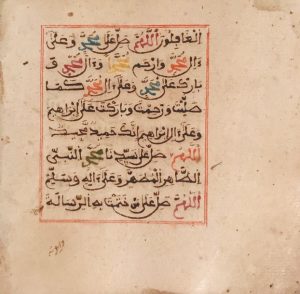 الغافلون اللهم صل على محمد وعلى
ءال محمد وارحم محمدا وءال محمد و
بارك على محمد وعلى ءال محمد كما
صليت ورحمت وباركت على إبراهيم
وعلى ءال إبراهيم إنك حميد مجيد
اللهم صل على سيدنا محمد النبي
الطاهر المطهر وعلى ءاله وسلم
اللهم صل على من ختمت به الرسالة
وايدته